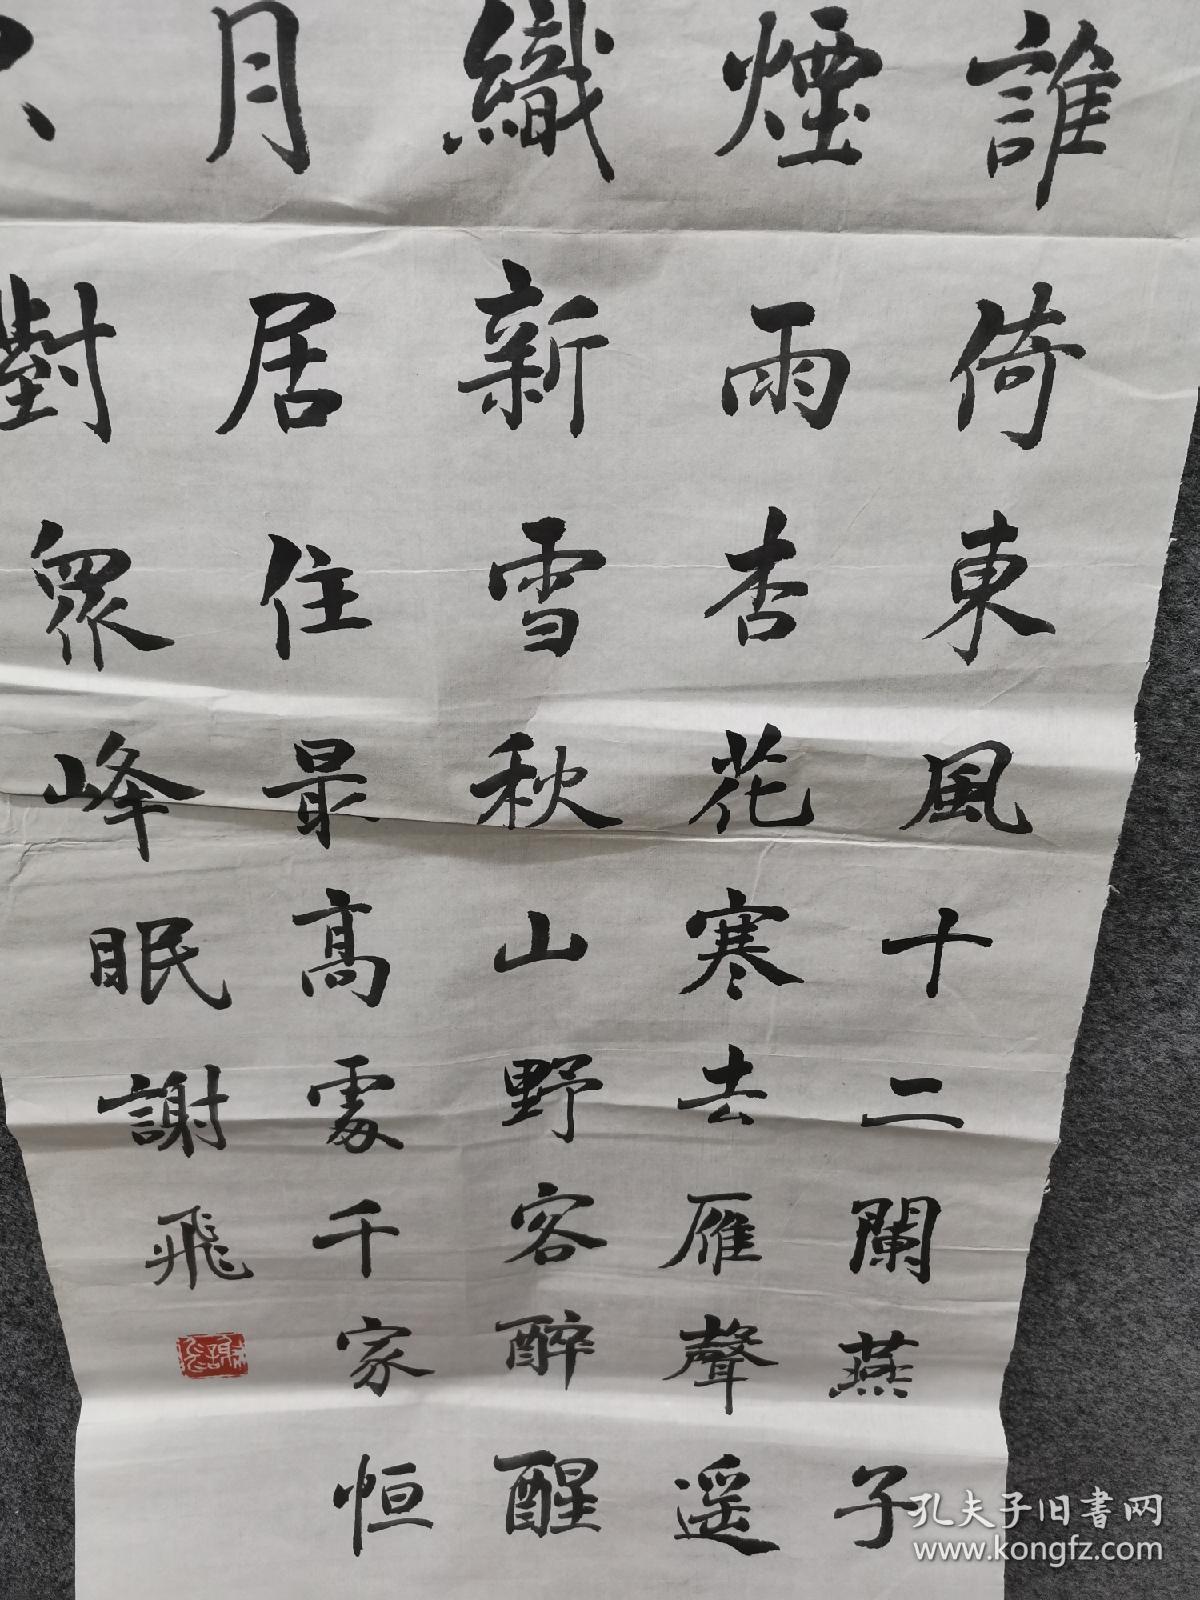 誰倚東風十二闌燕子
煙雨杏花寒去雁聲遥
織新雪秋山野客醉醒
月居住最高處千家恒
對眾峰眠謝飛
孔夫子旧書网
www.kongfz.com